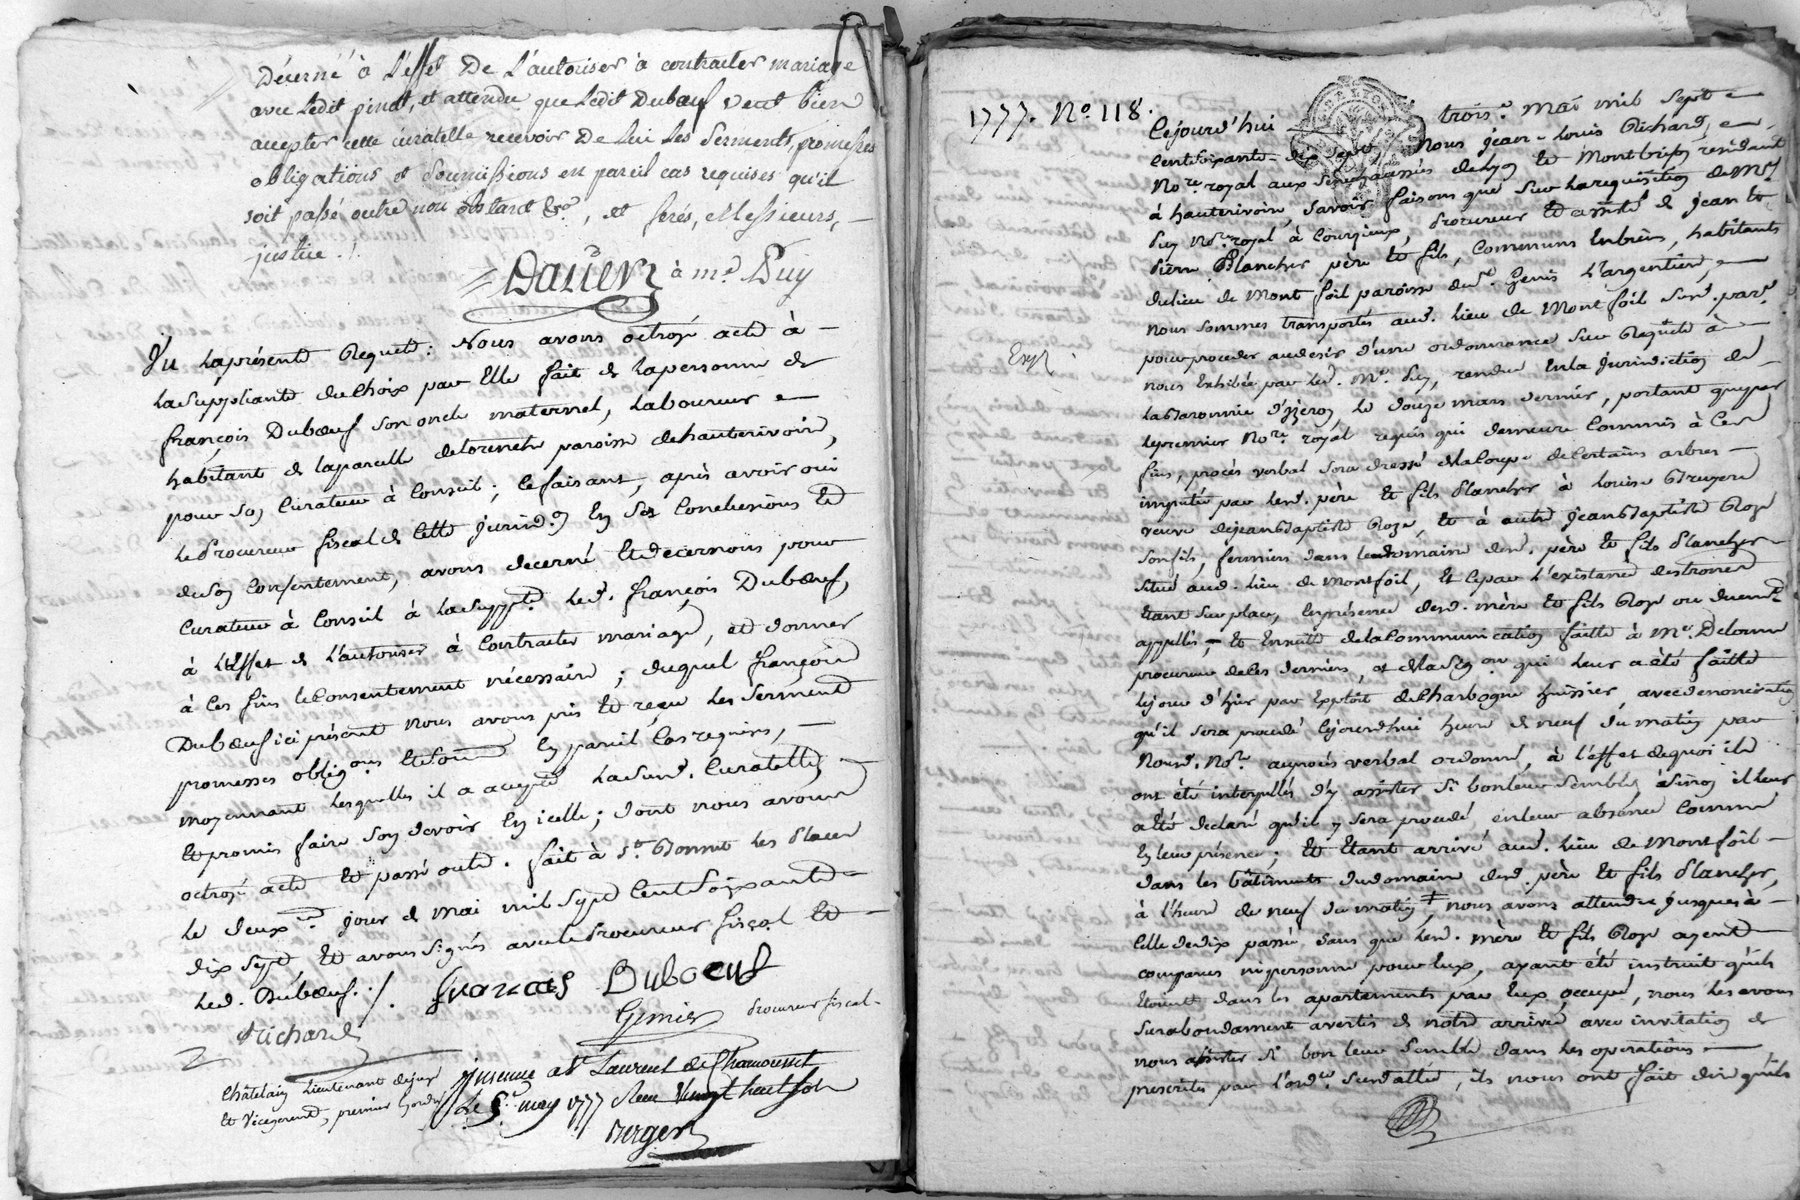 Décerné à l'effet De l'autoriser à contracter mariage
avec ledit pinet, et attendu que ledit Dubœuf veut bien
accepter cette curatelle recevoir De lui les serments, promesses
obligations et soumissions en pareil cas requises qu'il
soit passé outre non obstant &c., et ferés, Messieurs,
justice ./.
Dauer à me. Puy
Vu la présente Requete : Nous avons octroyé acte à
la suppliante du choix par Elle fait de la personne de
françois Dubœuf son oncle maternel, Laboureur
habitant de la parcelle de paroisse de hauterivoire,
pour son Curateur à Conseil ; Ce faisant, après avoir oui
le Procureur fiscal de Cette Juridon En ses Conclusions Et
de son Consentement, avons décerné Et décernons pour
Curateur à Conseil à la Suppte. led. françois Dubœuf,
à l'Effet de l'autoriser à Contracter mariage, et donner
à Ces fins le Consentement nécessaire ; duquel françois
Dubœuf ici présent nous avons pris Et reçu les Serment
promesses obligons Et soum En pareil Cas requises,
moyennant lesquelles il a accepté la Susd. Curatelle,
Et promis faire son devoir En icelle ; dont nous avons
octroyé acte Et passé outre. fait à St. Bonnet les Places
le deuxme jour de mai mil Sept Cent Soixante
dix sept Et avons signés avec le Procureur fiscal Et
led. Dubœuf ./.
francois Duboeuf
Richard
Grenier procureur fiscal
Châtelain Lieutenant de juge
Et Vicegerent, premier
Insinué a St Laurent de Chamousset
Le 5e may 1777 Reçu Vingt huit sols
Berger
1777. No. 118.
Cejourd'hui trois. Mai mil Sept
cent Soixante dix Sept, Nous Jean-Louis Richard,
Nore. royal aux Sénéchaussées de Lyon Et Montbrison résidant
à hauterivoire, Savoir faisons que Sur la requisition de Me.
Puy Nore. royal à Courzieux, procureur Et de Jean Et
Pierre Plancher père Et fils, Communs En biens, habitants
du lieu de Montfoil paroisse de St. Genis l'argentière,
nous sommes transportés aud. lieu de Montfoil Susd. parse.
pour proceder au desir d'une ordonnance Sur Requete à
nous Exhibée par led. Me. Puy, rendue En la Jurisdiction de
la Baronnie d'yzeron le douze mars dernier, portant que par
le premier Nore. royal requis qui demeure Commis à Ces
fins, procès verbal sera dressé de la Coupe de Certains arbres
imputée par lesd. père Et fils Plancher à Louise Bruyere
veuve de Jean Baptiste Roze, Et à autre Jean Baptiste Roze
son fils, fermiers dans le domaine desd. père Et fils Plancher
situé aud. lieu de Montfoil, Et Ce par l'existance des troncs
Etant sur place, En présence desd. mère Et fils Roze ou duement
appellés ; Et Ensuite de la Communication faitte à Me. Delorme
procureur de Ces derniers, et de la Sigon qui leur a été faitte
le jour d'hier par Exploit de Charbogne huissier, avec denonciation
qu'il sera procedé Cejourd'hui heure de neuf du matin par
Nousd. Nore. au procès verbal ordonné, à l'effet de quoi ils
ont été interpellés d'y assister Si bon leur Semble, à Sinon il leur
a Eté declaré qu'il y Sera procedé en leur absence Comme
En leur présence ; Et Etant arrivé aud. lieu de Montfoil
dans les bâtiments du domaine desd. père Et fils Plancher,
à l'heure de neuf du matin, nous avons attendu jusques à
Celle de dix passée Sans que lesd. mère Et fils Roze ayent
comparus ni personne pour Eux, ayant été instruit qu'ils
Etoient dans les apartements par Eux occupé, nous les avons
Surabondament avertis de notre arrivée avec invitation de
nous assister Si bon leur Semble dans les operations
prescrites par l'orde. Susdatée, ils nous ont fait dire qu'ils